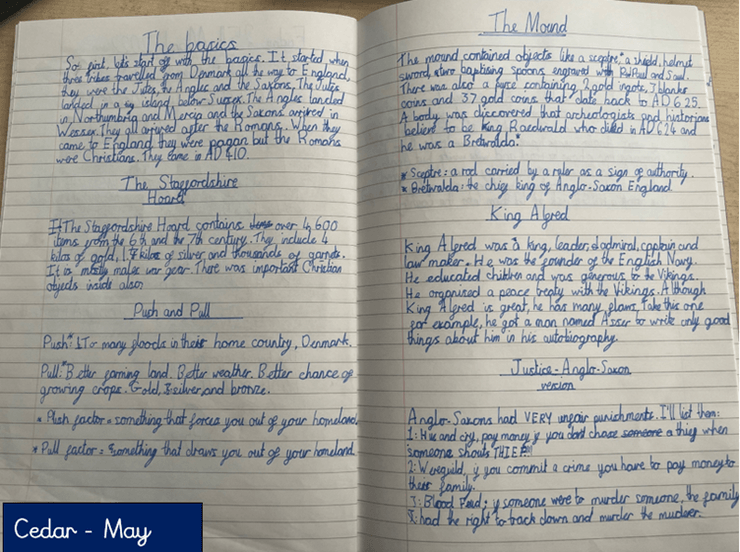 The basics
So first, lets start off with the basics. It started when
three tribes travelled from Denmark all the way to England,
they were the Jutes, the Angles and the Saxons. The Jutes
landed in a island below Sussex. The Angles landed
in Northumbria and Mercia and the Saxons arrived in
Wessex. They all arrived after the Romans. When they
came to England they were pagan but the Romans
were Christians. They came in AD 410.
The Staffordshire
Hoard
The Staffordshire Hoard contains over 4,600
items from the 6th and the 7th century. They include 4
kilos of gold, 1.7 kilos of silver and thousands of garnets.
It is mostly males war gear. There was important Christian
objects inside also.
Push and Pull
Push* : To many floods in their home country, Denmark.
Pull:* Better farming land. Better weather. Better chance of
growing crops. Gold, silver and bronze.
* Push factor = something that forces you out of your homeland.
* Pull factor = something that draws you out of your homeland
The Mound
The mound contained objects like a sceptre,* a shield, helmet
sword, two baptising spoons engraved with Paul and Saul.
There was also a purse containing, 2 gold ingots, 3 blank
coins and 37 gold coins that date back to AD 625.
A body was discovered that archeologists and historians
believe to be King Raedwald who died in AD 624 and
he was a Bretwalda.*
* Sceptre: a rod carried by a ruler as a sign of authority.
* Bretwalda: the chief king of Anglo-Saxon England.
King Alfred
King Alfred was a king, leader, admiral, captain and
law maker. He was the founder of the English Navy.
He educated children and was generous to the Vikings.
He organised a peace treaty with the Vikings. Although
King Alfred is great, he has many flaws. Take this one
for example, he got a man named Asser to write only good
things about him in his autobiography.
Justice - Anglo-Saxon
version
Anglo-Saxons had VERY unfair punishments. I'll list them:
1: Hue and cry, pay money if you dont chase someone a thief when
someone shouts THIEF!
2: Wereguild, if you commit a crime you have to pay money to
their family.
3: Blood Feud: if someone were to murder someone, the family
had the right to track down and murder the murderer.
Cedar - May